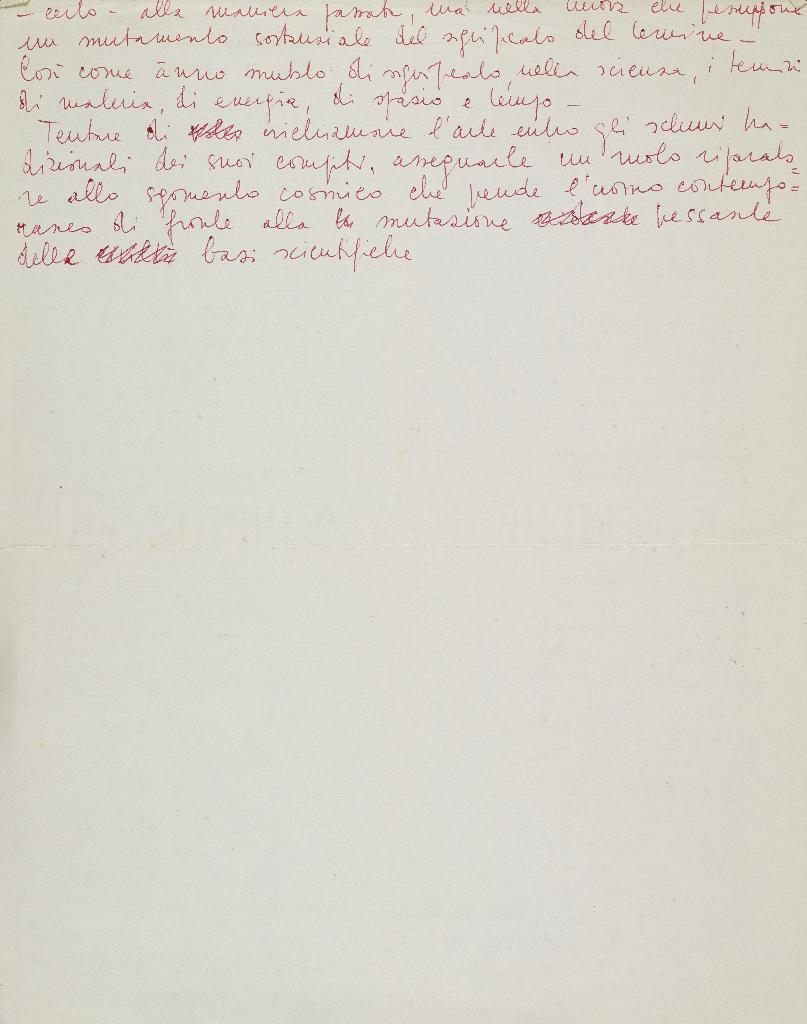 - certo - alla maniera passata, ma nella nuova che presuppone
un mutamento sostanziale del significato del termine -
Così come ànno mutato di significato, nella scienza, i termini
di materia, di energia, di spazio e tempo -
Tentare di richiamare l'arte entro gli schemi tra-
dizionali dei suoi compiti, assegnarle un ruolo riparato=
re allo sgomento cosmico che prende l'uomo contempo=
raneo di fronte alla mutazione pressante
delle basi scientifiche